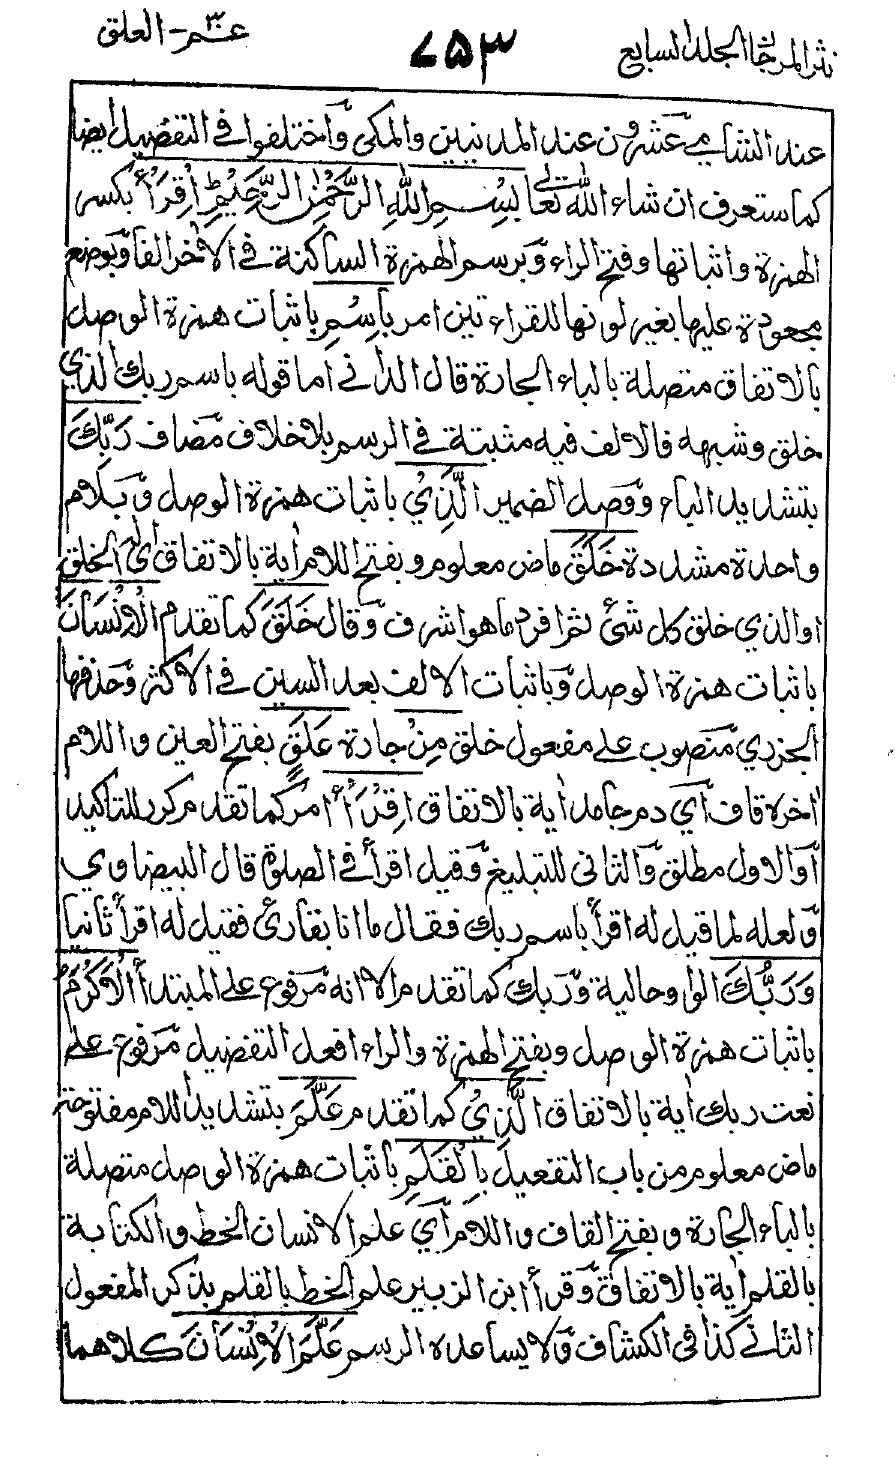 نثر المرجان الجلد السابع
٧٥٣
عم ٣٠ - العلق
عند الشامي وعشرون عند المدنيين والمكي واختلفوا في التفصيل ايضا
كما ستعرف ان شاء الله تعالى بِسْمِ اللهِ الرَّحْمٰنِ الرَّحِيْمِ اِقْرَأْ بكسر
الهمزة واثباتها وفتح الراء وبرسم الهمزة الساكنة في الآخر الفا وبوضع
مجعودة عليها بغير لونها للقراءتين امر بِاسْمِ باثبات همزة الوصل
بالاتفاق متصلة بالباء الجارة قال الداني اما قوله باسم ربك الذي
خلق وشبهه فالالف فيه مثبتة في الرسم بلاخلاف مضاف رَبِّكَ
بتشديد الباء ووصل الضمير الَّذِيْ باثبات همزة الوصل وبلام
واحدة مشددة خَلَقَ ماض معلوم وبفتح اللام اٰية بالاتفاق اي له الخلق
اوالذي خلق كل شئ ثم افرد ما هو اشرف وقال خَلَقَ كما تقدم الْاِنْسَانَ
باثبات همزة الوصل وباثبات الالف بعد السين في الاكثر وحذفها
الجزري منصوب على مفعول خلق مِنْ جارة عَلَقٍ بفتح العين واللام
اٰخره قاف اي دم جامد اٰية بالاتفاق اِقْرَأْ امر كما تقدم مكرر للتاكيد
اوالاول مطلق والثاني للتبليغ وقيل اقرأ في الصلوة قال البيضاوي
ولعله لما قيل له اقرأ باسم ربك فقال ما انا بقارئ فقيل له اقرأ ثانيا
وَرَبُّكَ الواو حالية وربك كما تقدم الا انه مرفوع على المبتدأ الْاَكْرَمُ
باثبات همزة الوصل وبفتح الهمزة والراء افعل التفضيل مرفوع على
نعت ربك اٰية بالاتفاق الَّذِيْ كما تقدم عَلَّمَ بتشديد اللام مفتوحة
ماض معلوم من باب التفعيل بِالْقَلَمِ باثبات همزة الوصل متصلة
بالباء الجارة وبفتح القاف واللام اي علم الانسان الخط والكتابة
بالقلم اٰية بالاتفاق وقرأ ابن الزبير علم الخط بالقلم بذكر المفعول
الثاني كذا في الكشاف ولا يساعده الرسم عَلَّمَ الْاِنْسَانَ كلاهما